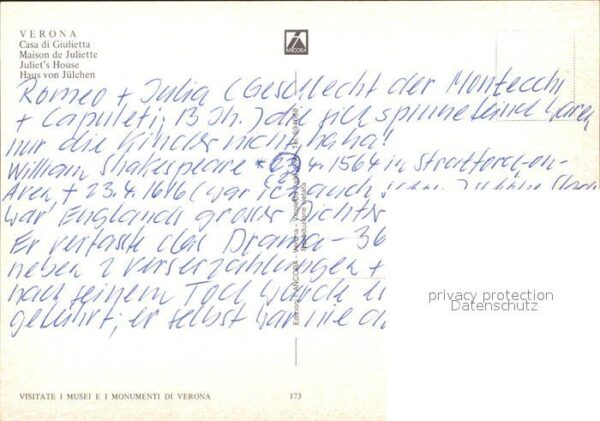 VERONA
Casa di Giulietta
Maison de Juliette
Juliet's House
Haus von Jülchen
ANCORA
Romeo + Julia (Geschlecht der Montecchi
+ Capuleti; 13 Jh. Jahr sich spinnefeind waren
nur die Kinder nicht haha!
William Shakespeare * 4. 1564 in Stratford-on-
Aven, + 23.4.1616 (war ich auch
war Englands grosser Dichter
Er verfasste das Drama - 36
neben 2 Verserzählungen +
nach seinem Tod wurde
geführt; er selbst war nie
privacy protection
Datenschutz
VISITATE I MUSEI E I MONUMENTI DI VERONA
173